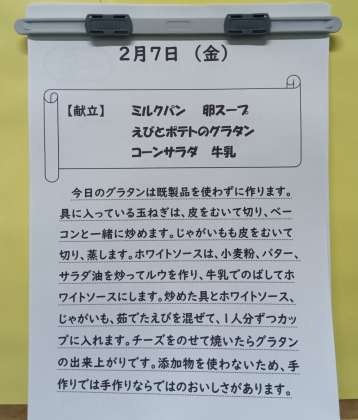 2月7日（金）
【献立】 ミルクパン 卵スープ
えびとポテトのグラタン
コーンサラダ 牛乳
今日のグラタンは既製品を使わずに作ります。
具に入っている玉ねぎは、皮をむいて切り、ベー
コンと一緒に炒めます。じゃがいもも皮をむいて
切り、蒸します。ホワイトソースは、小麦粉、バター、
サラダ油を炒ってルウを作り、牛乳でのばしてホ
ワイトソースにします。炒めた具とホワイトソース、
じゃがいも、茹でたえびを混ぜて、1人分ずつカッ
プに入れます。チーズをのせて焼いたらグラタン
の出来上がりです。添加物を使わないため、手
作りでは手作りならではのおいしさがあります。